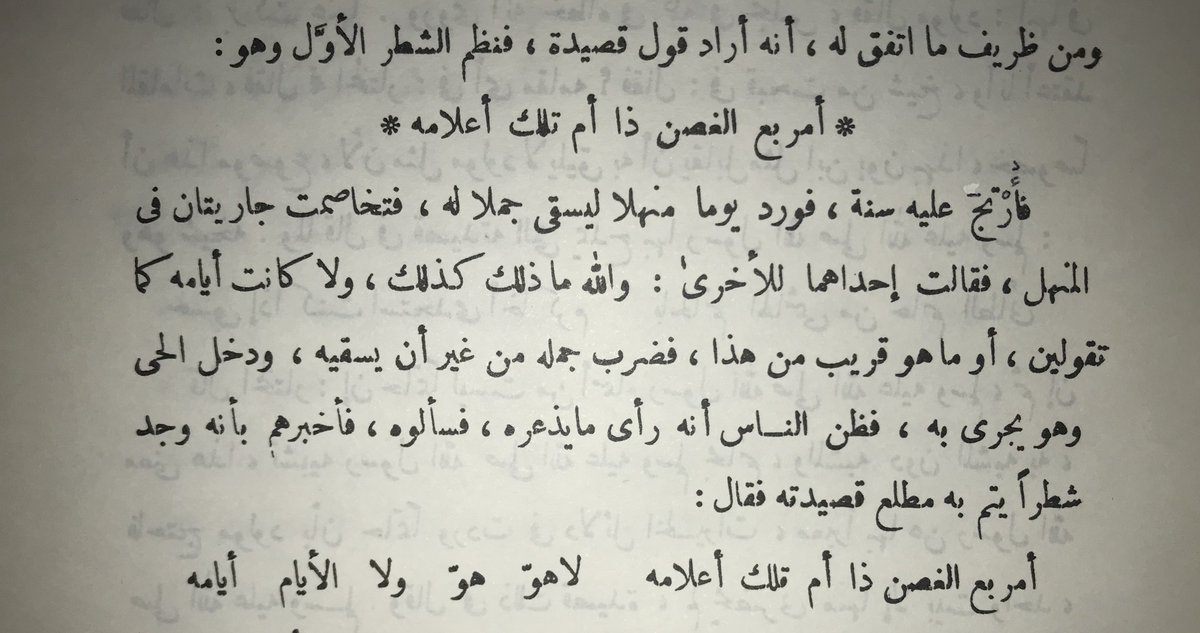 ومن ظريف ما اتفق له ، أنه أراد قول قصيدة ، فنظم الشطر الأوَّل وهو :
* أمربع الغصن ذا أم تلك أعلامه *
فأُرْتِجَ عليه سنة ، فورد يوما منهلا ليسقى جملا له ، فتخاصمت جاريتان فى
المنهل ، فقالت إحداهما للأخرىٰ : والله ما ذلك كذلك ، ولا كانت أيامه كما
تقولين ، أو ما هو قريب من هذا ، فضرب جمله من غير أن يسقيه ، ودخل الحى
وهو يجرى به ، فظن النــاس أنه رأى ما يذعره ، فسألوه ، فأخبرهم بأنه وجد
شطراً يتم به مطلع قصيدته فقال :
أمربع الغصن ذا أم تلك أعلامه لاهوّ هوّ ولا الأيام أيامه